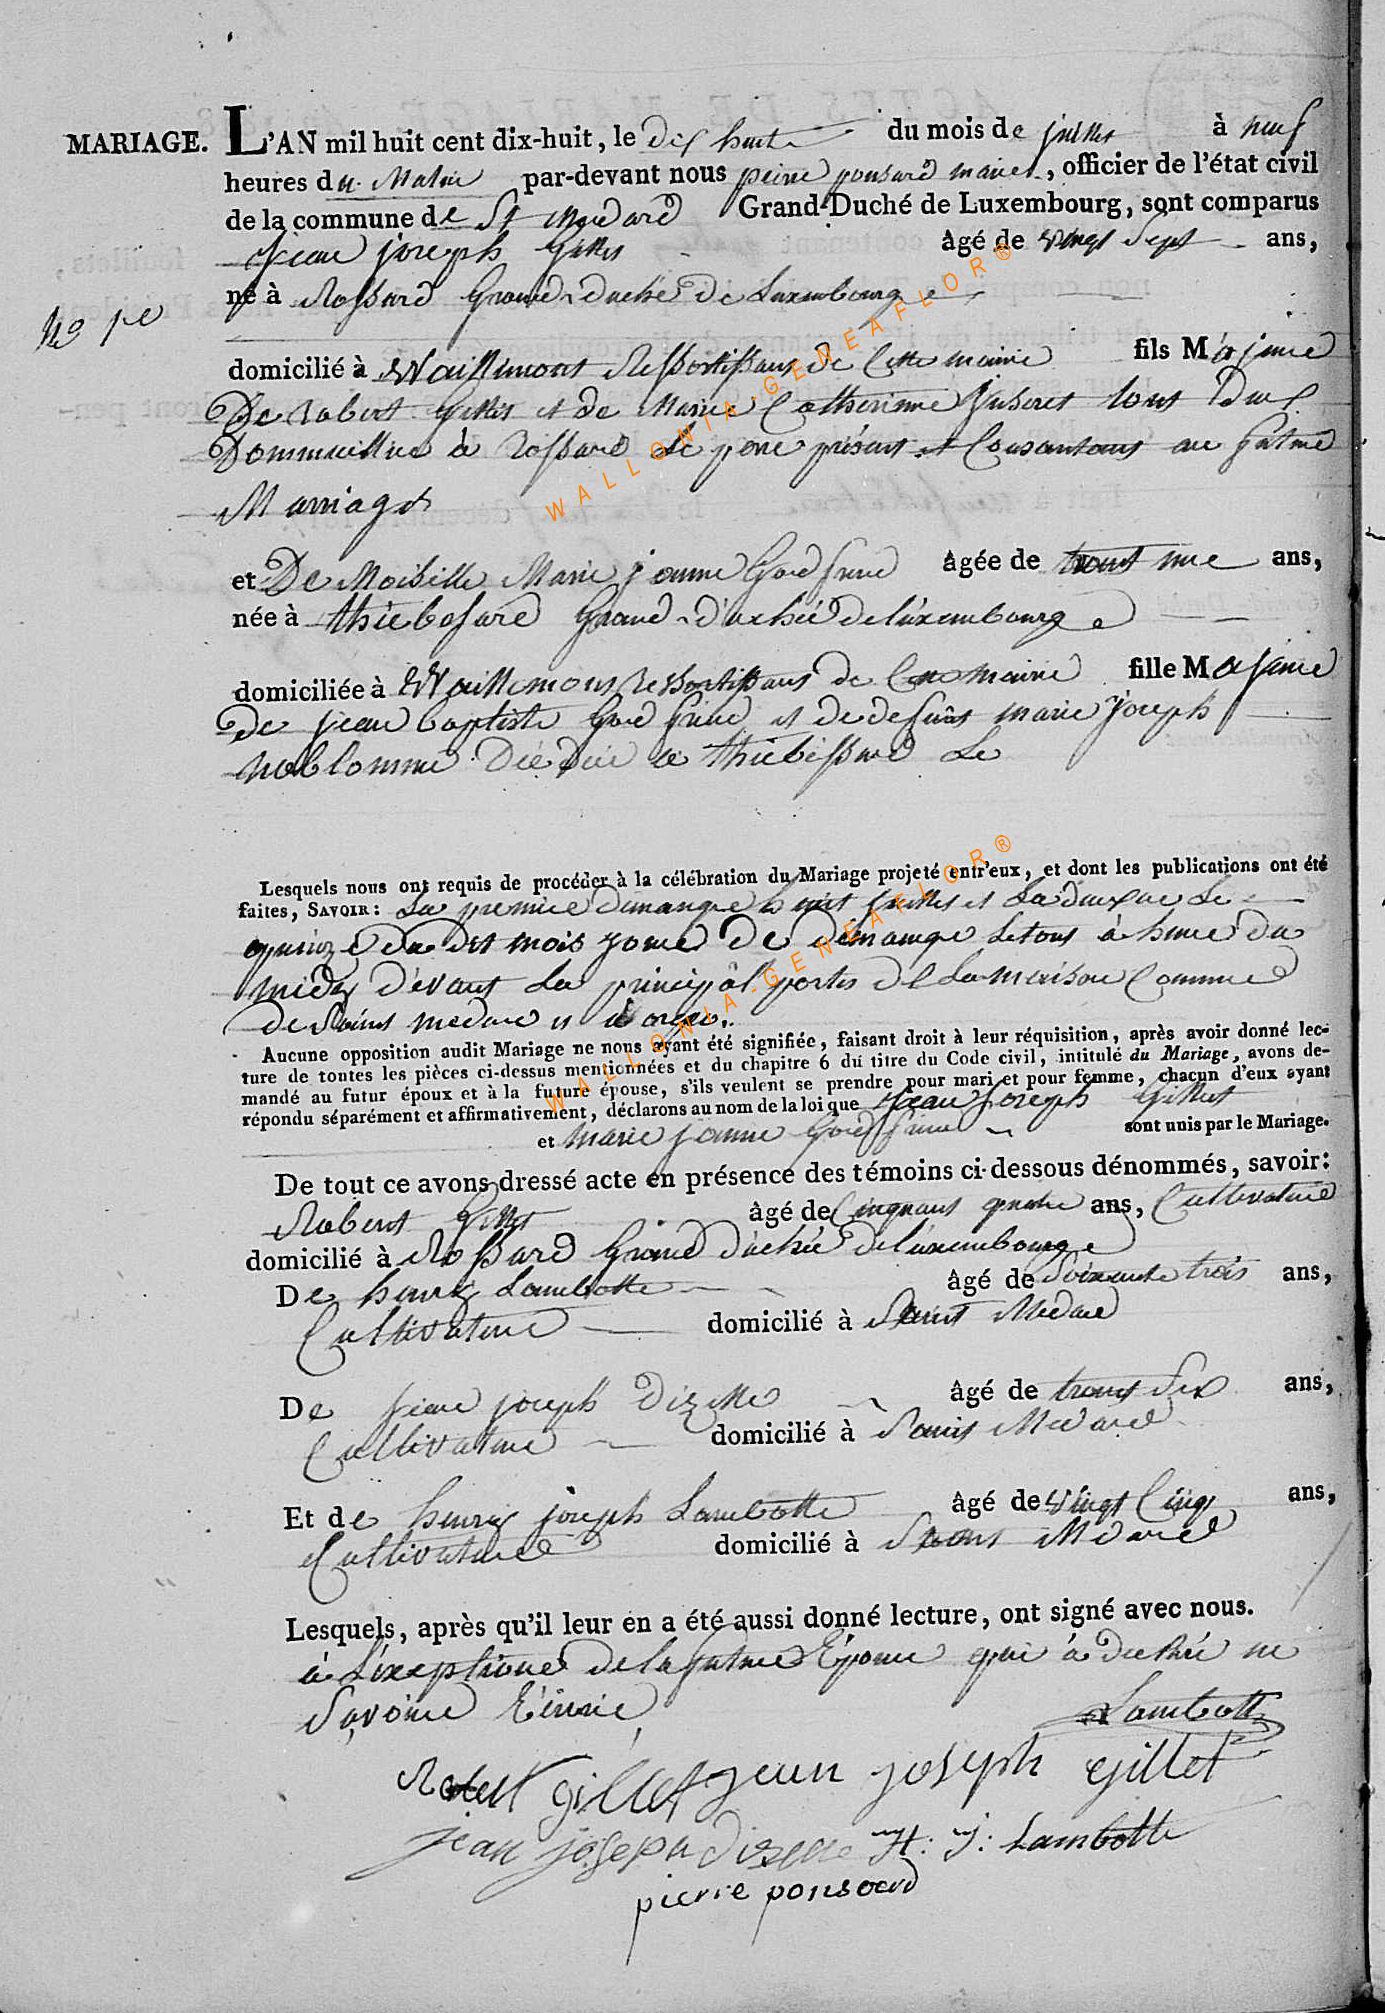 MARIAGE. L'AN mil huit cent dix-huit, le dix huite du mois de juillet à neuf
heures du Matin par-devant nous pierre ponsard maire, officier de l'état civil
de la commune de St Medard Grand-Duché de Luxembourg, sont comparus
Jean joseph Gillet âgé de vingt Sept ans,
né à Rossard Grand-duché de Luxembourg
No 1er
domicilié à Waillimont Ressortissant de Cette mairie fils Majeure
De Robert Gillet et de Marie Catherinne tous Deux
Dommicillié à Rossard Le pere présent et Consantant au futur
Marriage
et De Moiselle Marie jeanne Godfrine âgée de trent une ans,
née à thiebesard Grand-Duchée deluxembourg
domiciliée à Waillimont Ressortissant de Cette mairie fille Majeure
De jean baptiste Godfrine et de defunt marie joseph
Noblomme Décédée a thiebessard Le
Lesquels nous ont requis de procéder à la célébration du Mariage projeté entr'eux, et dont les publications ont été
faites, SAVOIR: La premiere dimange huit juillet et La deuxeme Le
quinze du dit mois jour de dimange Letout à heure du
midy dévant La principal porte de La maison Commune
de Saint medard
Aucune opposition audit Mariage ne nous ayant été signifiée, faisant droit à leur réquisition, après avoir donné lec-
ture de toutes les pièces ci-dessus mentionnées et du chapitre 6 du titre du Code civil, intitulé du Mariage, avons de-
mandé au futur époux et à la future épouse, s'ils veulent se prendre pour mari et pour femme, chacun d'eux ayant
répondu séparément et affirmativement, déclarons au nom de la loi que Jean Joseph Gillet
et marie jeanne Godfrine sont unis par le Mariage.
De tout ce avons dressé acte en présence des témoins ci-dessous dénommés, savoir:
Robert Gillet âgé de Cinquant quatre ans, Cultivateur
domicilié à Rossard Grand duchée deluxembourg
De henry Lambotte âgé de Soixante trois ans,
Cultivateur domicilié à Saint Medard
De jean joseph Dizelle âgé de trent Six ans,
Cultivateur domicilié à Saint Medard
Et de henry joseph Lambotte âgé de vingt Cinq ans,
Cultivateur domicilié à Saint Medard
Lesquels, après qu'il leur en a été aussi donné lecture, ont signé avec nous.
à L'éxeption de la future Epouse qui à declaré ne
Savoire Ecrire
Lambotte
Robert gillet jean joseph gillet
jean joseph dizelle H: j: Lambotte
pierre ponsard
WALLONIA-GENEAFLOR®
WALLONIA-GENEAFLOR®